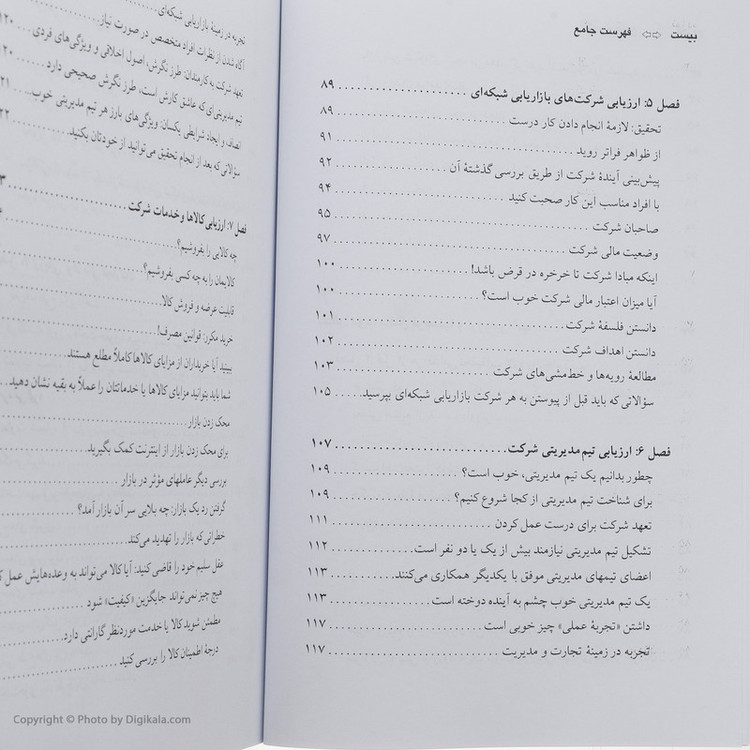 بیست ⇦⇨ فهرست جامع
فصل ۵: ارزیابی شرکت‌های بازاریابی شبکه‌ای ۸۹
تحقیق: لازمهٔ انجام دادن کار درست ۸۹
از ظواهر فراتر روید ۹۱
پیش‌بینی آیندهٔ شرکت از طریق بررسی گذشتهٔ آن ۹۲
با افراد مناسب این کار صحبت کنید ۹۴
صاحبان شرکت ۹۵
وضعیت مالی شرکت ۹۷
اینکه مبادا شرکت تا خرخره در قرض باشد! ۱۰۰
آیا میزان اعتبار مالی شرکت خوب است؟ ۱۰۰
دانستن فلسفهٔ شرکت ۱۰۱
دانستن اهداف شرکت ۱۰۲
مطالعهٔ رویه‌ها و خط‌مشی‌های شرکت ۱۰۳
سؤالاتی که باید قبل از پیوستن به هر شرکت بازاریابی شبکه‌ای بپرسید ۱۰۵
فصل ۶: ارزیابی تیم مدیریتی شرکت ۱۰۷
چطور بدانیم یک تیم مدیریتی، خوب است؟ ۱۰۹
برای شناخت تیم مدیریتی از کجا شروع کنیم؟ ۱۰۹
تعهد شرکت برای درست عمل کردن ۱۱۱
تشکیل تیم مدیریتی نیازمند بیش از یک یا دو نفر است ۱۱۲
اعضای تیمهای مدیریتی موفق با یکدیگر همکاری می‌کنند ۱۱۳
یک تیم مدیریتی خوب چشم به آینده دوخته است ۱۱۳
داشتن «تجربهٔ عملی» چیز خوبی است ۱۱۷
تجربه در زمینهٔ تجارت و مدیریت ۱۱۷
تجربه در زمینهٔ بازاریابی شبکه‌ای
آگاه شدن از نظرات افراد متخصص در صورت نیاز
تعهد شرکت به کارمندان: طرز نگرش، اصول اخلاقی و ویژگی‌های فردی ۱۲۰
تیم مدیریتی‌ای که عاشق کارش است، طرز نگرش صحیحی دارد
انصاف و ایجاد شرایطی یکسان: ویژگی‌های بارز هر تیم مدیریتی خوب
سؤالاتی که بعد از انجام تحقیق می‌توانید از خودتان بکنید
فصل ۷: ارزیابی کالاها و خدمات شرکت
چه کالایی را بفروشیم؟
کالایمان را به چه کسی بفروشیم؟
قابلیت عرضه و فروش کالا
خرید مکرر: قوانین مصرف!
ببینید آیا خریداران از مزایای کالاها کاملاً مطلع هستند
شما باید بتوانید مزایای کالاها یا خدماتتان را عملاً به بقیه نشان دهید
محک زدن بازار
برای محک زدن بازار از اینترنت کمک بگیرید
بررسی دیگر عاملهای مؤثر در بازار
گرفتن رد یک بازار: چه بلایی سر آن بازار آمد؟
خطراتی که بازار را تهدید می‌کند
عقل سلیم خود را قاضی کنید: آیا کالا می‌تواند به وعده‌هایش عمل
هیچ چیز نمی‌تواند جایگزین «کیفیت» شود
مطمئن شوید کالا یا خدمت موردنظر گارانتی دارد
درجهٔ اطمینان کالا را بررسی کنید
Copyright © Photo by Digikala.com